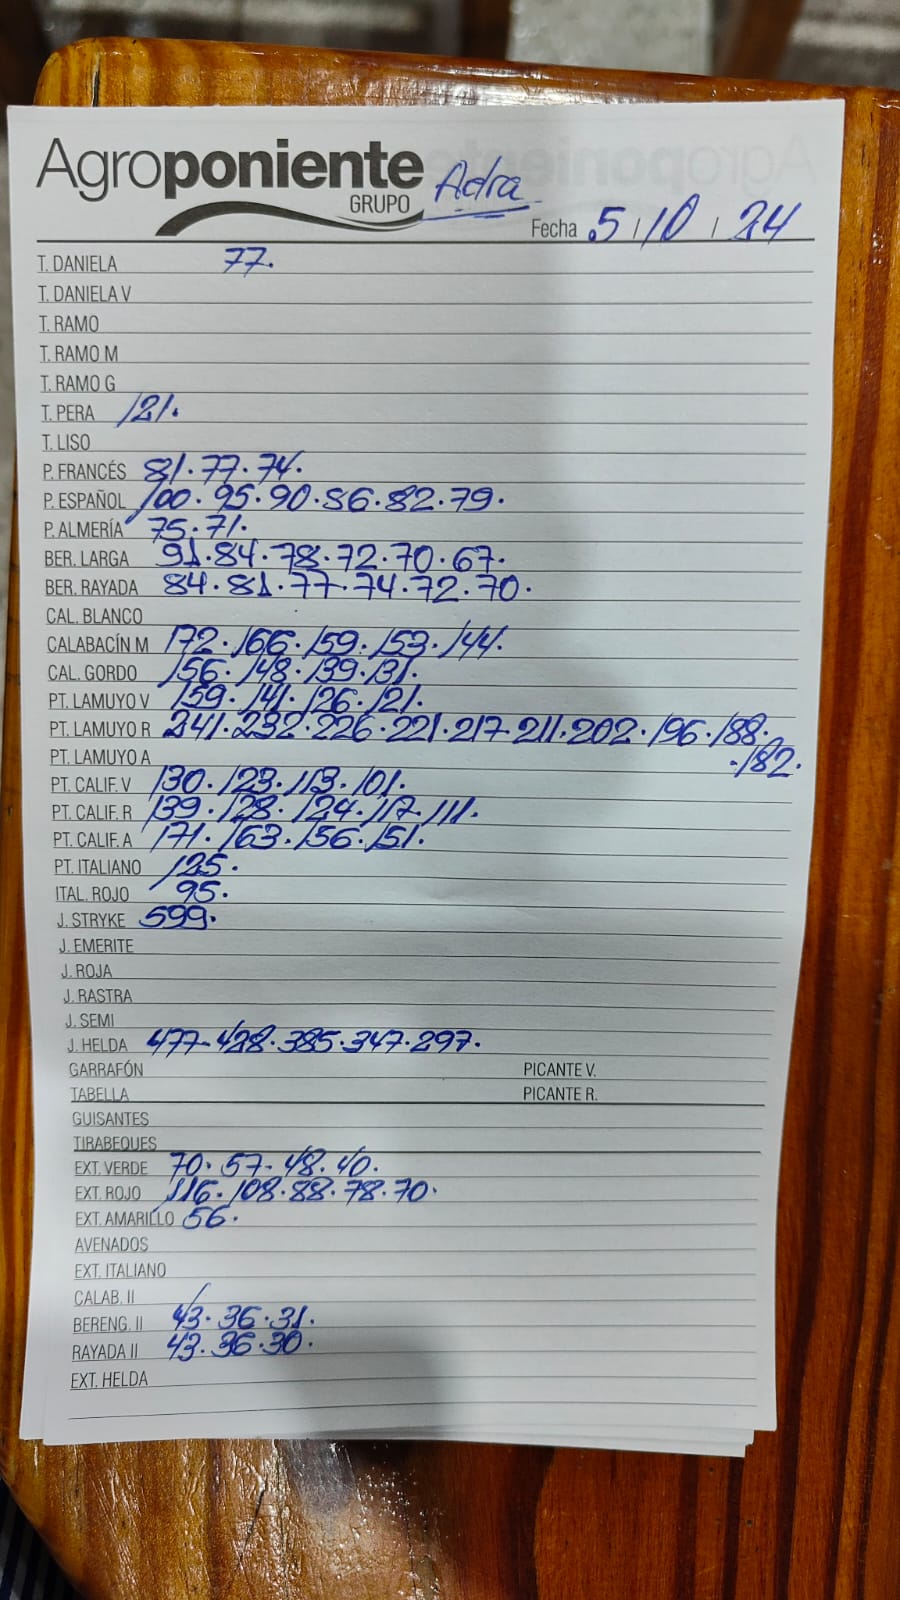 Agroponiente
GRUPO
Adra
Fecha 5 / 10 / 24
T. DANIELA 77.
T. DANIELA V
T. RAMO
T. RAMO M
T. RAMO G
T. PERA 121.
T. LISO
P. FRANCÉS 81.77.74.
P. ESPAÑOL 100.95.90.86.82.79.
P. ALMERÍA 75.71.
BER. LARGA 91.84.78.72.70.67.
BER. RAYADA 84.81.77.74.72.70.
CAL. BLANCO
CALABACÍN M 172.166.159.153.144.
CAL. GORDO 156.148.139.131.
PT. LAMUYO V 159.141.126.121.
PT. LAMUYO R 241.232.226.221.217.211.202.196.188.
.182.
PT. LAMUYO A
PT. CALIF. V 130.123.113.101.
PT. CALIF. R 139.128.124.117.111.
PT. CALIF. A 171.163.156.151.
PT. ITALIANO 125.
ITAL. ROJO 95.
J. STRYKE 599.
J. EMERITE
J. ROJA
J. RASTRA
J. SEMI
J. HELDA 477.428.385.347.297.
GARRAFÓN PICANTE V.
TABELLA PICANTE R.
GUISANTES
TIRABEQUES
EXT. VERDE 70.57.48.40.
EXT. ROJO 116.108.88.78.70.
EXT. AMARILLO 56.
AVENADOS
EXT. ITALIANO
CALAB. II
BERENG. II 43.36.31.
RAYADA II 43.36.30.
EXT. HELDA